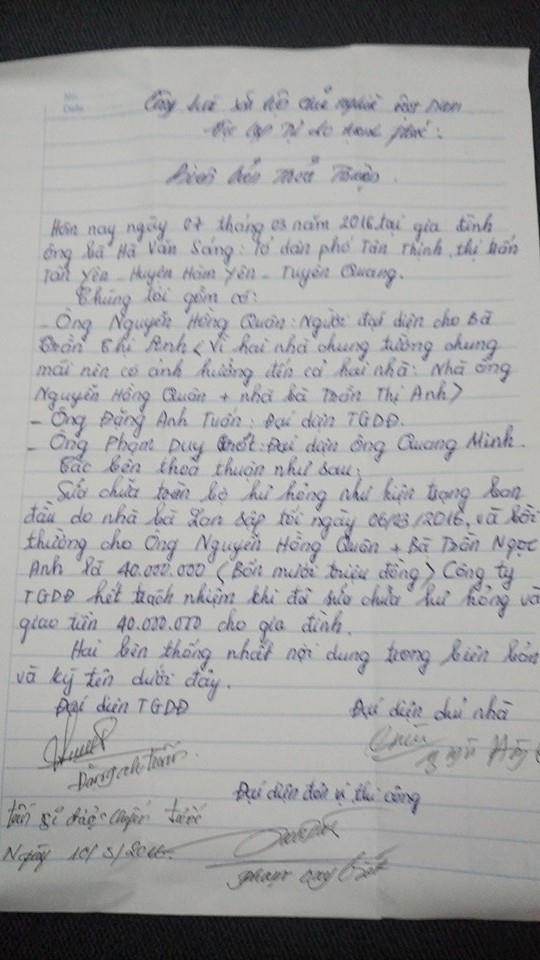 Cộng hoà xã hội chủ nghĩa việt Nam
Độc lập Tự do hạnh phúc:
Biên bản Thoả Thuận.
Hôm nay ngày 07 tháng 03 năm 2016 tại gia đình
ông bà Hà Văn Sáng: Tổ dân phố Tân Thịnh, thị trấn
Tân Yên - Huyện Hàm Yên - Tuyên Quang.
Chúng tôi gồm có:
- Ông Nguyễn Hồng Quân: Người đại diện cho Bà
Trần Thị Anh < Vì hai nhà chung tường chung
mái nên có ảnh hưởng đến cả hai nhà: Nhà ông
Nguyễn Hồng Quân + nhà bà Trần Thị Anh>
- Ông Đặng Anh Tuấn: Đại diện TGDĐ.
- Ông Phạm Duy : Đại diện ông Quang Minh.
Các bên thoả thuận như sau:
Sửa chữa toàn bộ hư hỏng như hiện trạng ban
đầu do nhà bà Lan sập tối ngày 06/03/2016, và bồi
thường cho Ông Nguyễn Hồng Quân + Bà Trần Ngọc
Anh là 40.000.000 <Bốn mươi triệu đồng> Công ty
TGDĐ hết trách nhiệm khi đã sửa chữa hư hỏng và
giao tiền 40.000.000 cho gia đình.
Hai bên thống nhất nội dung trong biên bản
và ký tên dưới đây.
Đại diện TGDĐ Đại diện chủ nhà
Đặng anh tuấn
Đại diện đơn vị thi công
tiền sẽ được chuyển trước
Ngày 10/3/2016.
phạm duy